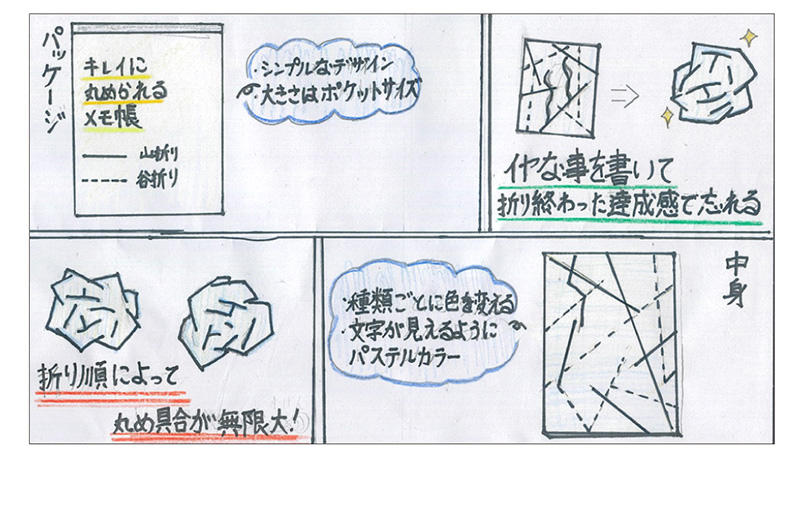 パッケージ
キレイに
丸められる
メモ帳
山折り
谷折り
・シンプルなデザイン
・大きさはポケットサイズ
イヤな事を書いて
折り終わった達成感で忘れる
折り順によって
丸め具合が無限大!
・種類ごとに色を変える
・文字が見えるように
パステルカラー
中身